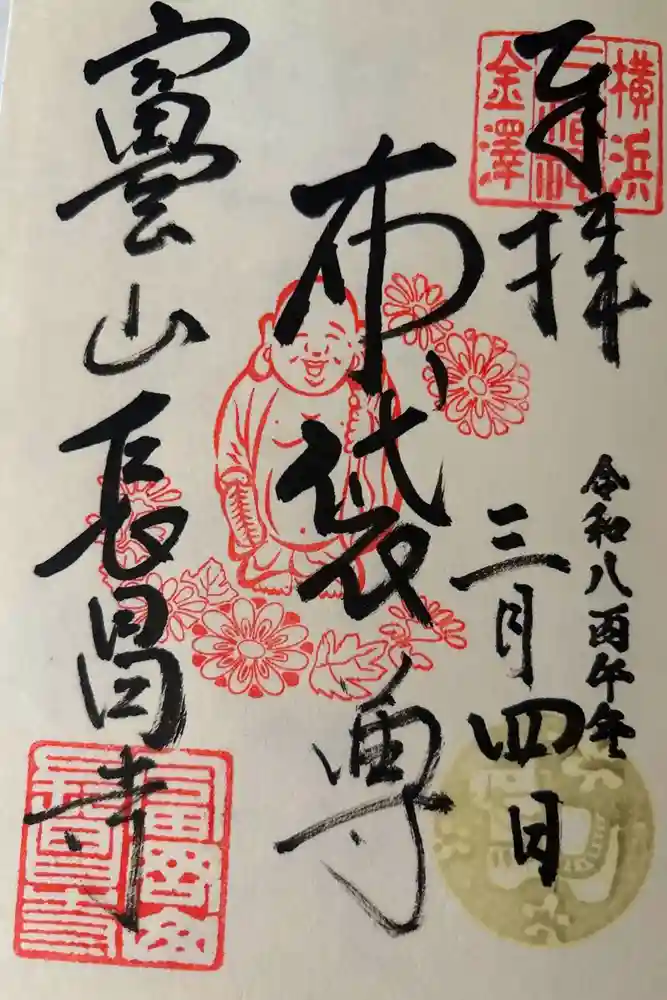 奉拝
横浜
金澤
令和八丙午年
三月四日
布袋尊
富雲山長昌寺